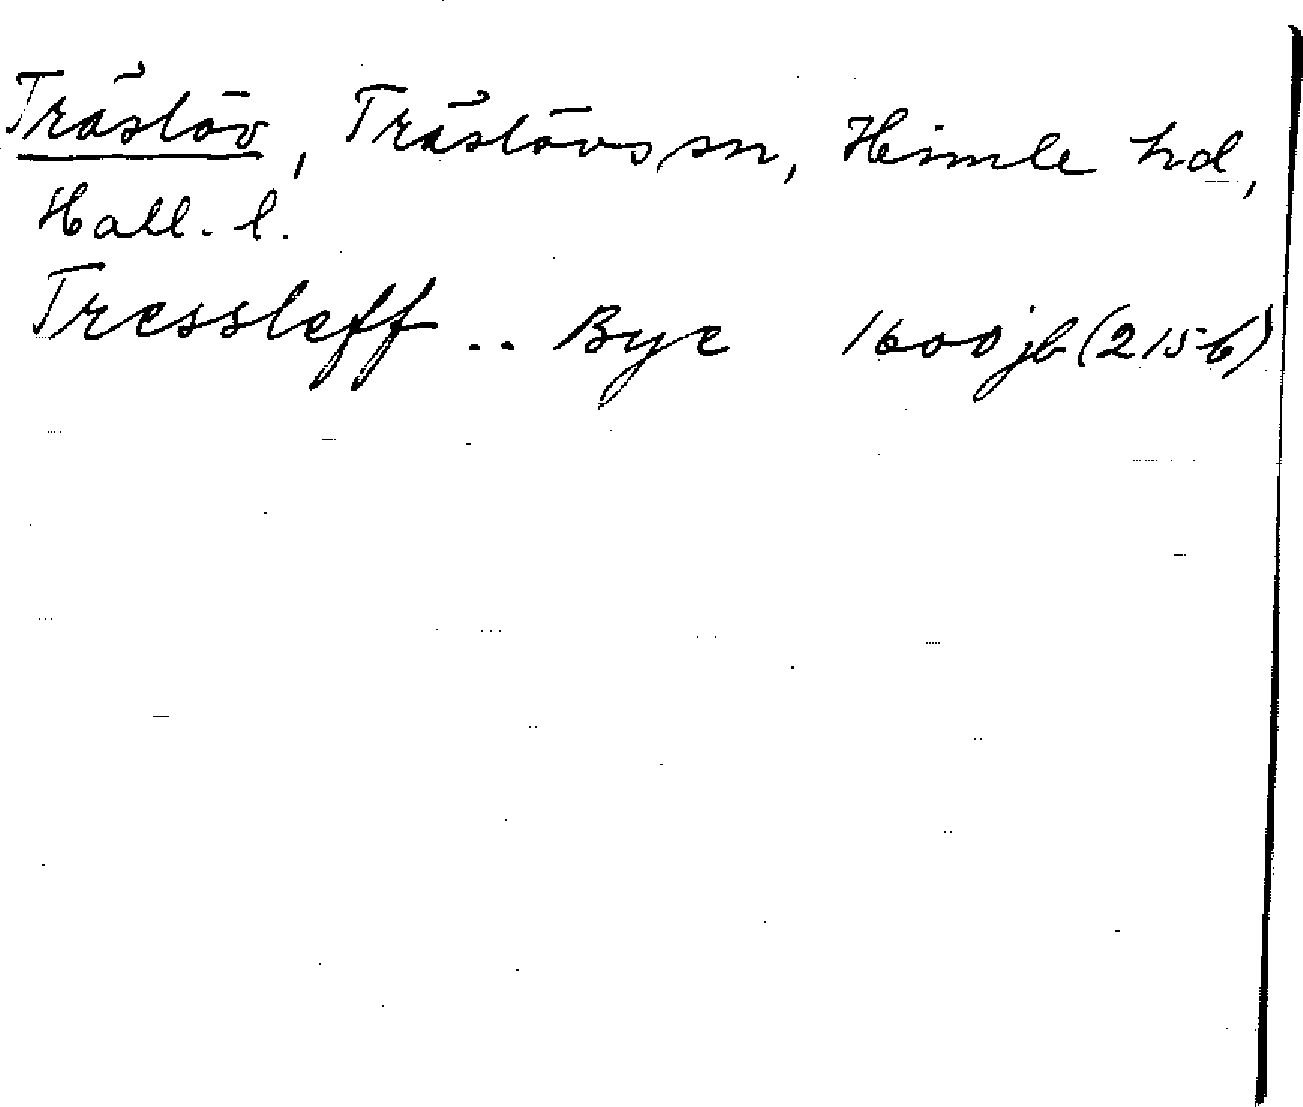 Träslöv, Träslövs sn, Himle hd,
Hall. l.
Tressleff .. Bye 1600 jb (215 b)